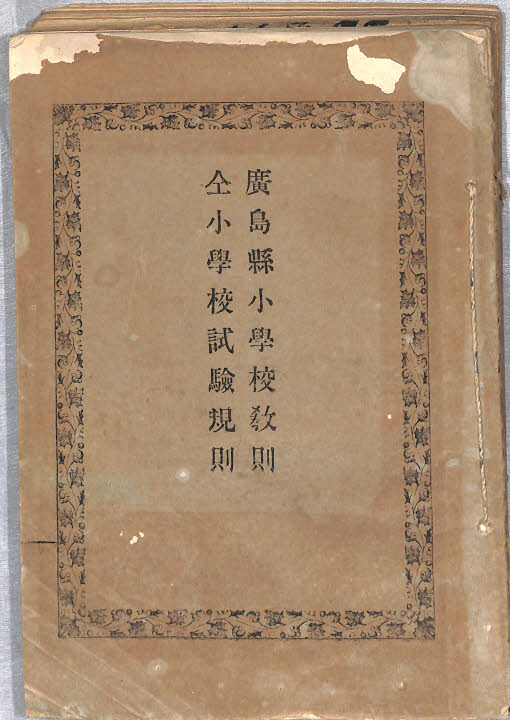 廣島縣小學校敎則
仝小學校試驗規則